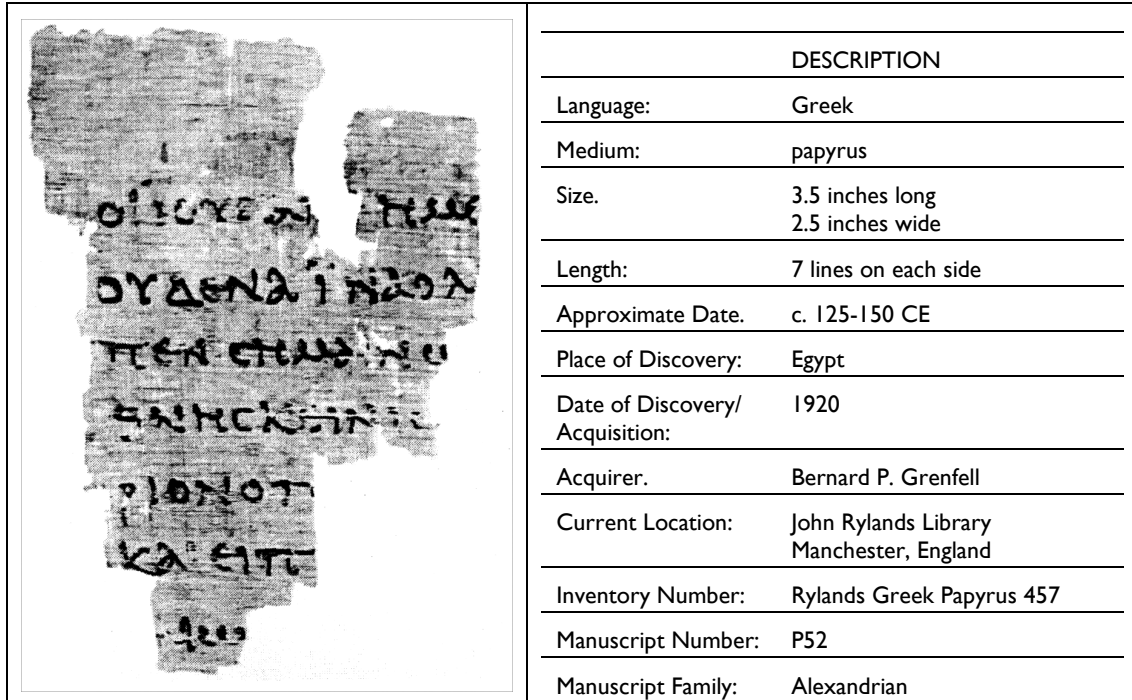 ΟΙ ΙΟΥΔΑΙ ΗΜΕ
ΟΥΔΕΝΑ ΙΝΑ Ο Λ
ΠΕΝ CΗΜΑΙΝΩ
ΡΙΟΝ Ο Π
ΚΑΙ ΕΙΠ
DESCRIPTION
Language: Greek
Medium: papyrus
Size. 3.5 inches long
2.5 inches wide
Length: 7 lines on each side
Approximate Date. c. 125-150 CE
Place of Discovery: Egypt
Date of Discovery/ 1920
Acquisition:
Acquirer. Bernard P. Grenfell
Current Location: John Rylands Library
Manchester, England
Inventory Number: Rylands Greek Papyrus 457
Manuscript Number: P52
Manuscript Family: Alexandrian